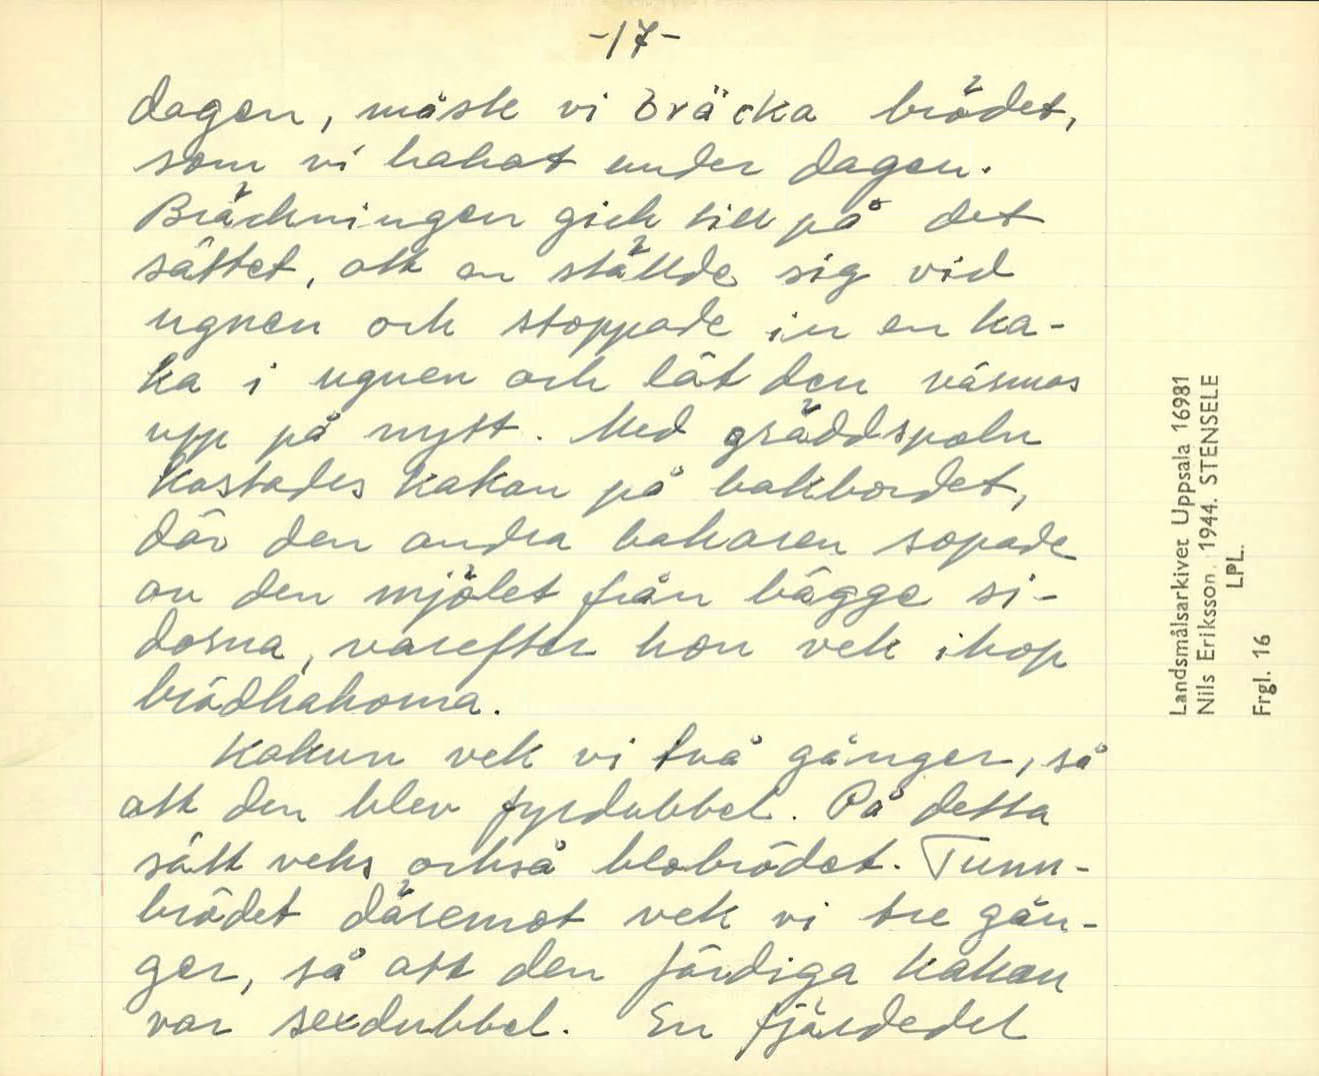 -17-
dagen, måste vi bräcka brödet,
som vi bakat under dagen.
Bräckningen gick till på det
sättet, att en ställde sig vid
ugnen och stoppade in en ka-
ka i ugnen och lät den värmas
upp på nytt. Med gräddspaln
kastades kakan på bakbordet,
där den andra bakaren sopade
av den mjölet från bägge si-
dorna, varefter hon vek ihop
brödkakorna.
Kakun vek vi två gånger, så
att den blev fyrdubbel. På detta
sätt veks också blobrödet. Tunn-
brödet däremot vek vi tre gån-
ger, så att den färdiga kakan
var sexdubbel. En fjärdedel
Landsmålsarkivet Uppsala 16981
Nils Eriksson. 1944. STENSELE
LPL.
Frgl. 16